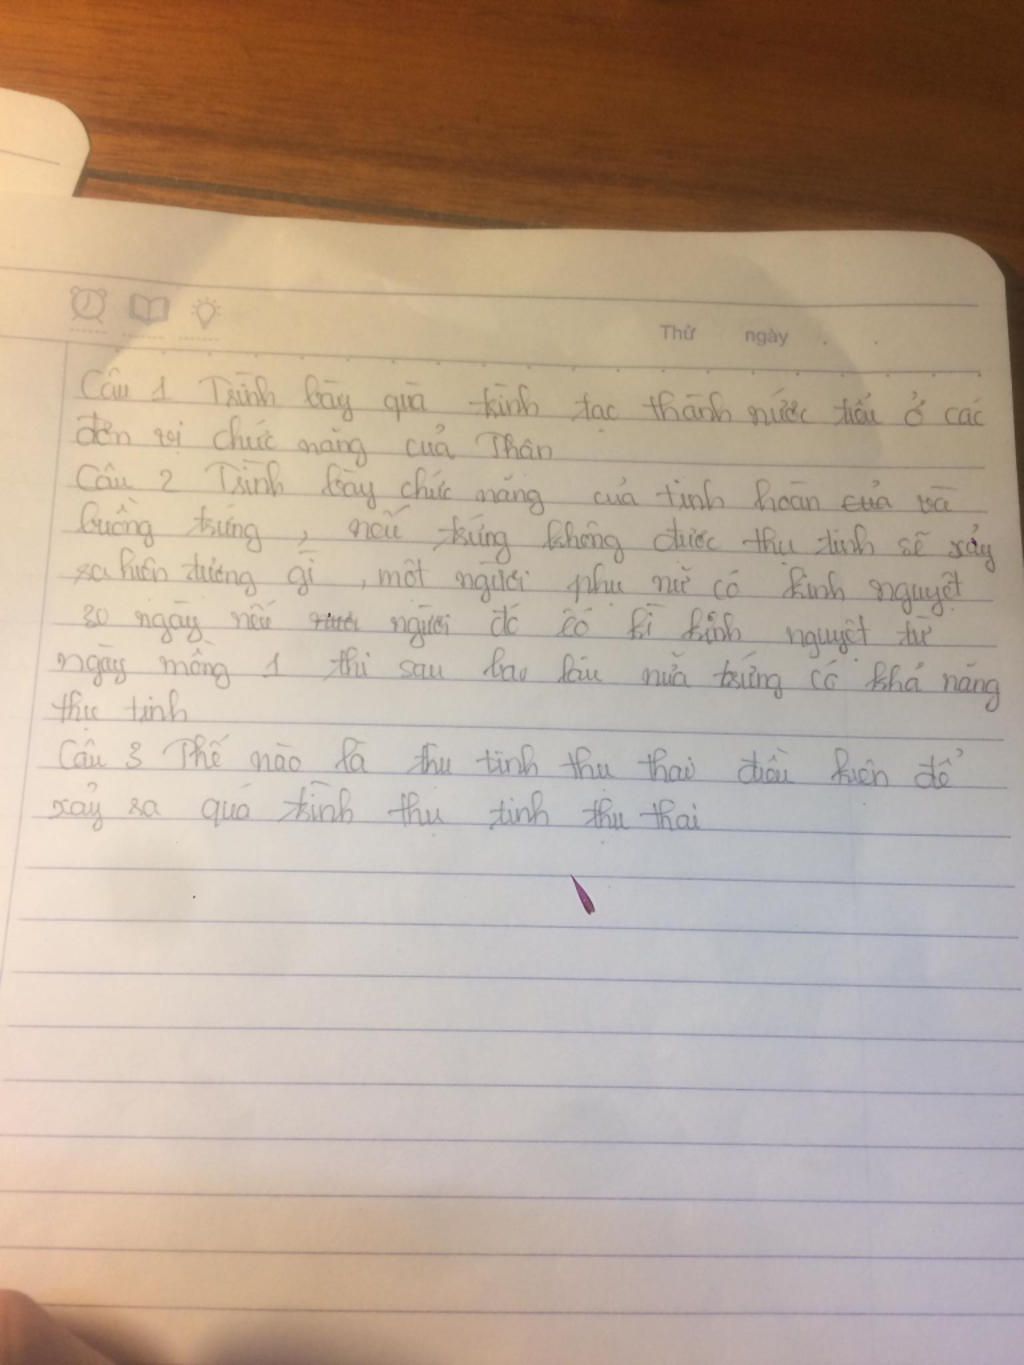 Thứ ngày . .
Câu 1 Trình bày quá trình tạc thành nước tiểu ở các
đơn vị chức năng của Thận
Câu 2 Trình bày chức năng của tinh hoàn của và
buồng trứng , nếu trứng không được thụ tinh sẽ xảy
ra hiện tượng gì , một người phụ nữ có kinh nguyệt
30 ngày nếu người đó có kì kinh nguyệt từ
ngày mồng 1 thì sau bao lâu nữa trứng có khả năng
thụ tinh
Câu 3 Thế nào là thụ tinh thụ thai điều kiện để
xảy ra quá trình thụ tinh thụ thai